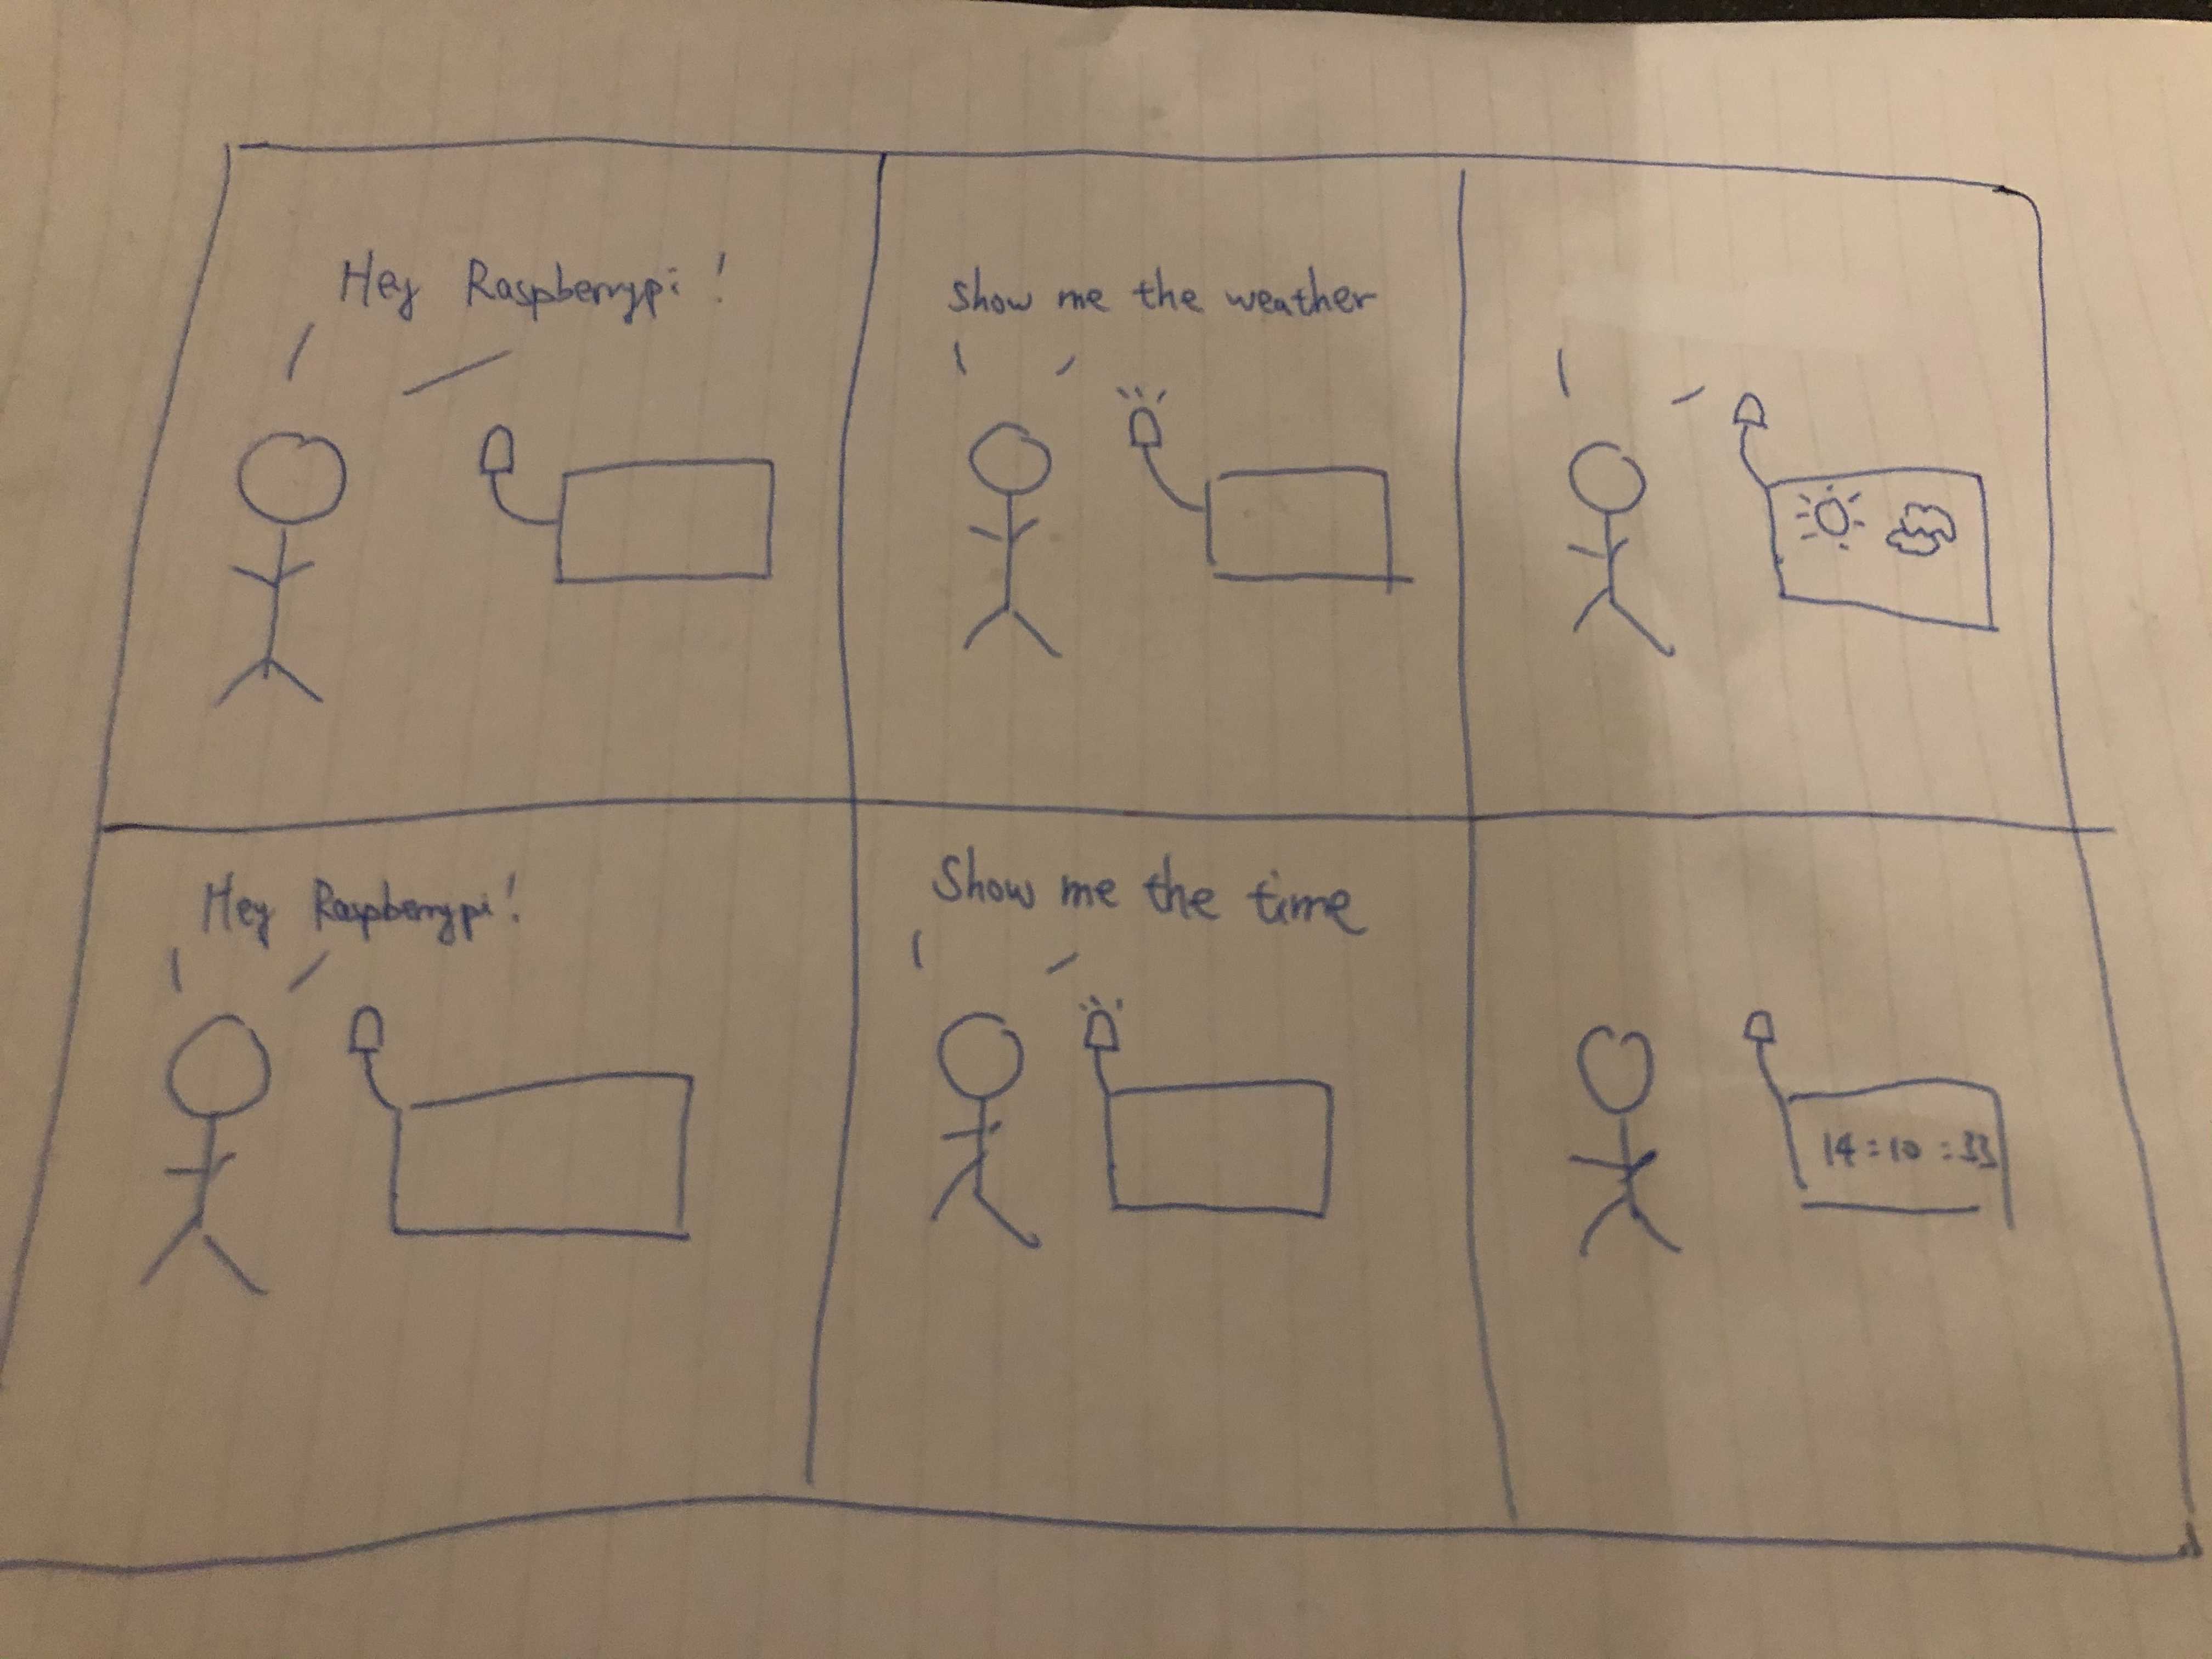 Hey Raspberrypi!
Show me the weather
Hey Raspberrypi!
Show me the time
14:10:33